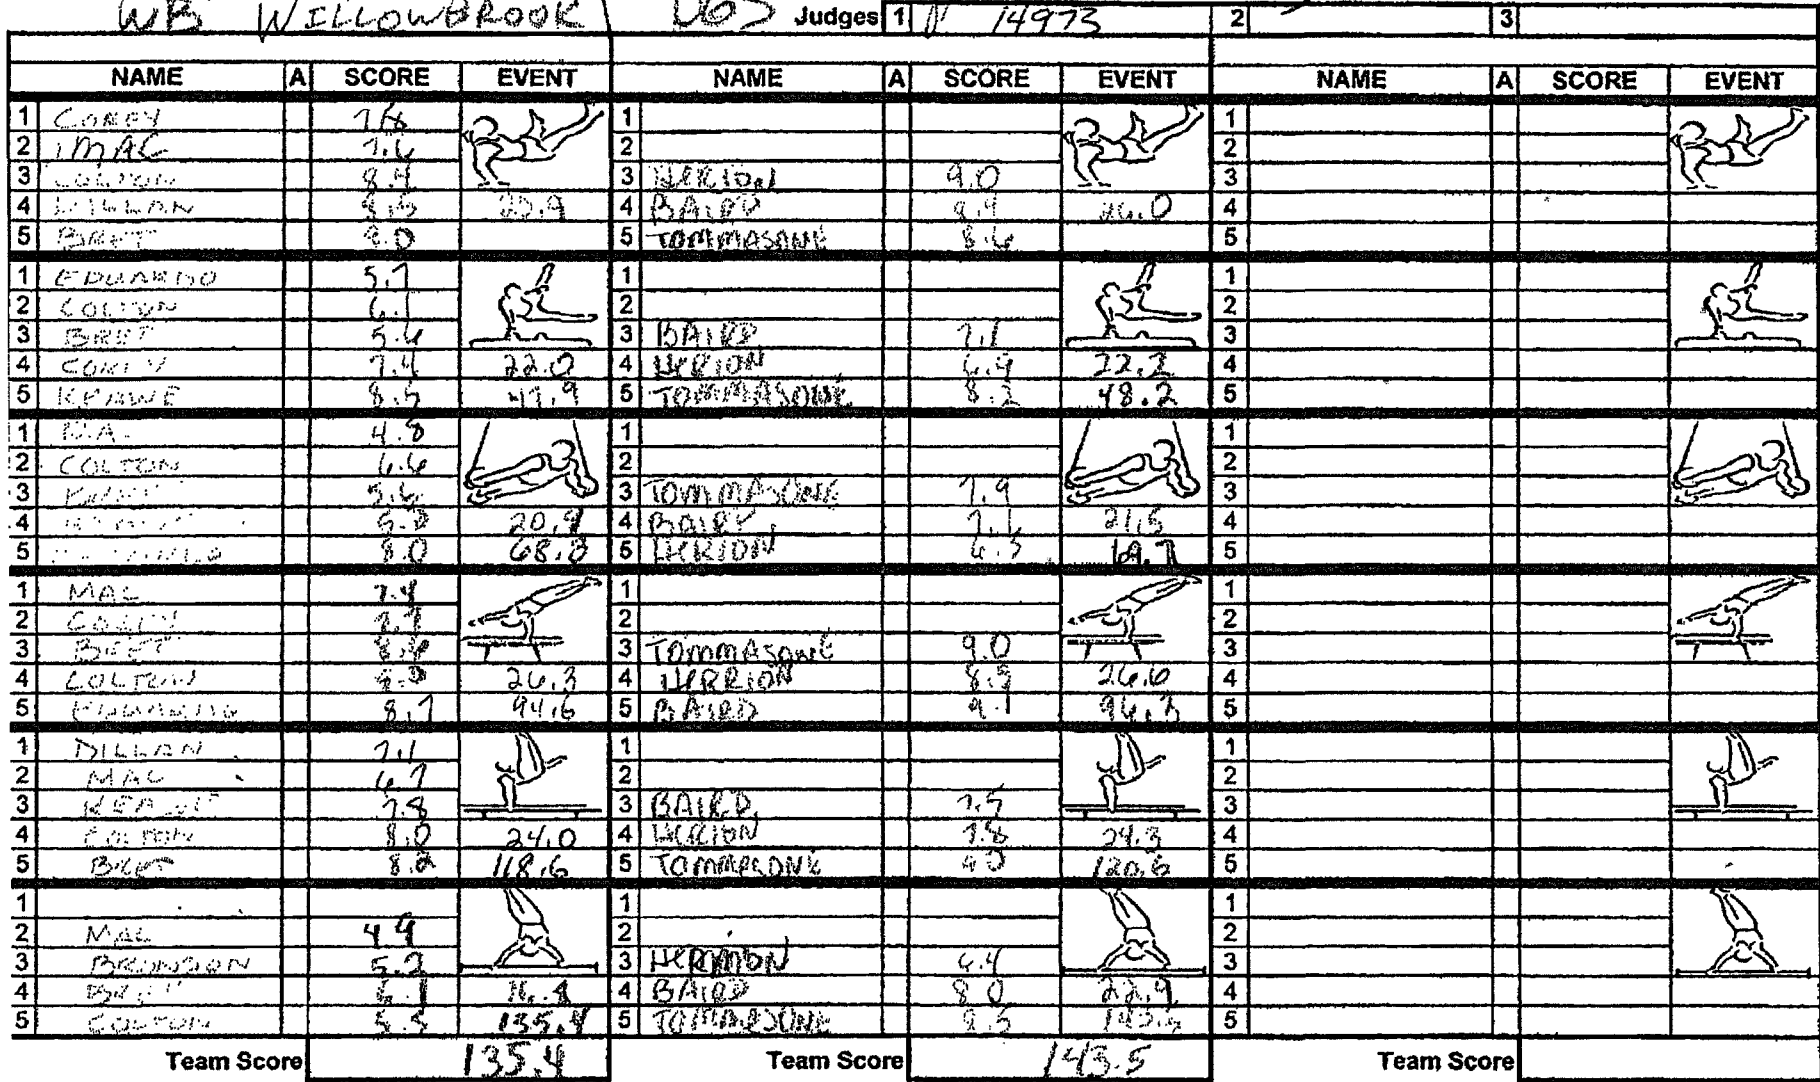 WB WILLOWBROOK DGS Judges 1 14973 2 3
NAME A SCORE EVENT NAME A SCORE EVENT NAME A SCORE EVENT
1 COREY 1 1
2 MAC 7.6 2 2
3 COLTON 8.4 3 HERION 9.0 3
4 DILLAN 8.5 25.9 4 BAIRD 8.4 26.0 4
5 BRET 9.0 5 TOMMASONE 8.6 5
1 EDUARDO 5.7 1 1
2 COLTON 6.1 2 2
3 BRET 5.6 3 BAIRD 7.1 3
4 COREY 7.4 22.0 4 HERION 6.9 22.2 4
5 KEAWE 8.5 47.9 5 TOMMASONE 8.2 48.2 5
1 4.8 1 1
2 COLTON 6.6 2 2
3 5.6 3 TOMMASONE 7.9 3
4 20.4 4 BAIRD 7.1 21.5 4
5 8.0 68.3 5 HERION 6.5 69.7 5
1 MAC 7.4 1 1
2 COREY 7.7 2 2
3 BRET 8.6 3 TOMMASONE 9.0 3
4 COLTON 9.0 26.3 4 HERRION 8.5 26.6 4
5 EDUARDO 8.7 94.6 5 BAIRD 9.1 96.3 5
1 DILLAN 7.1 1 1
2 MAC 6.7 2 2
3 KEAWE 7.8 3 BAIRD 7.5 3
4 COLTON 8.0 24.0 4 HERION 7.8 24.3 4
5 BRET 8.2 118.6 5 TOMMASONE 9.0 120.6 5
1 1 1
2 MAC 4.9 2 2
3 BRONSON 5.2 3 HERRION 6.4 3
4 BRET 6.1 16.8 4 BAIRD 8.0 22.9 4
5 COLTON 5.5 135.4 5 TOMMASONE 8.5 143.5 5
Team Score 135.4 Team Score 143.5 Team Score